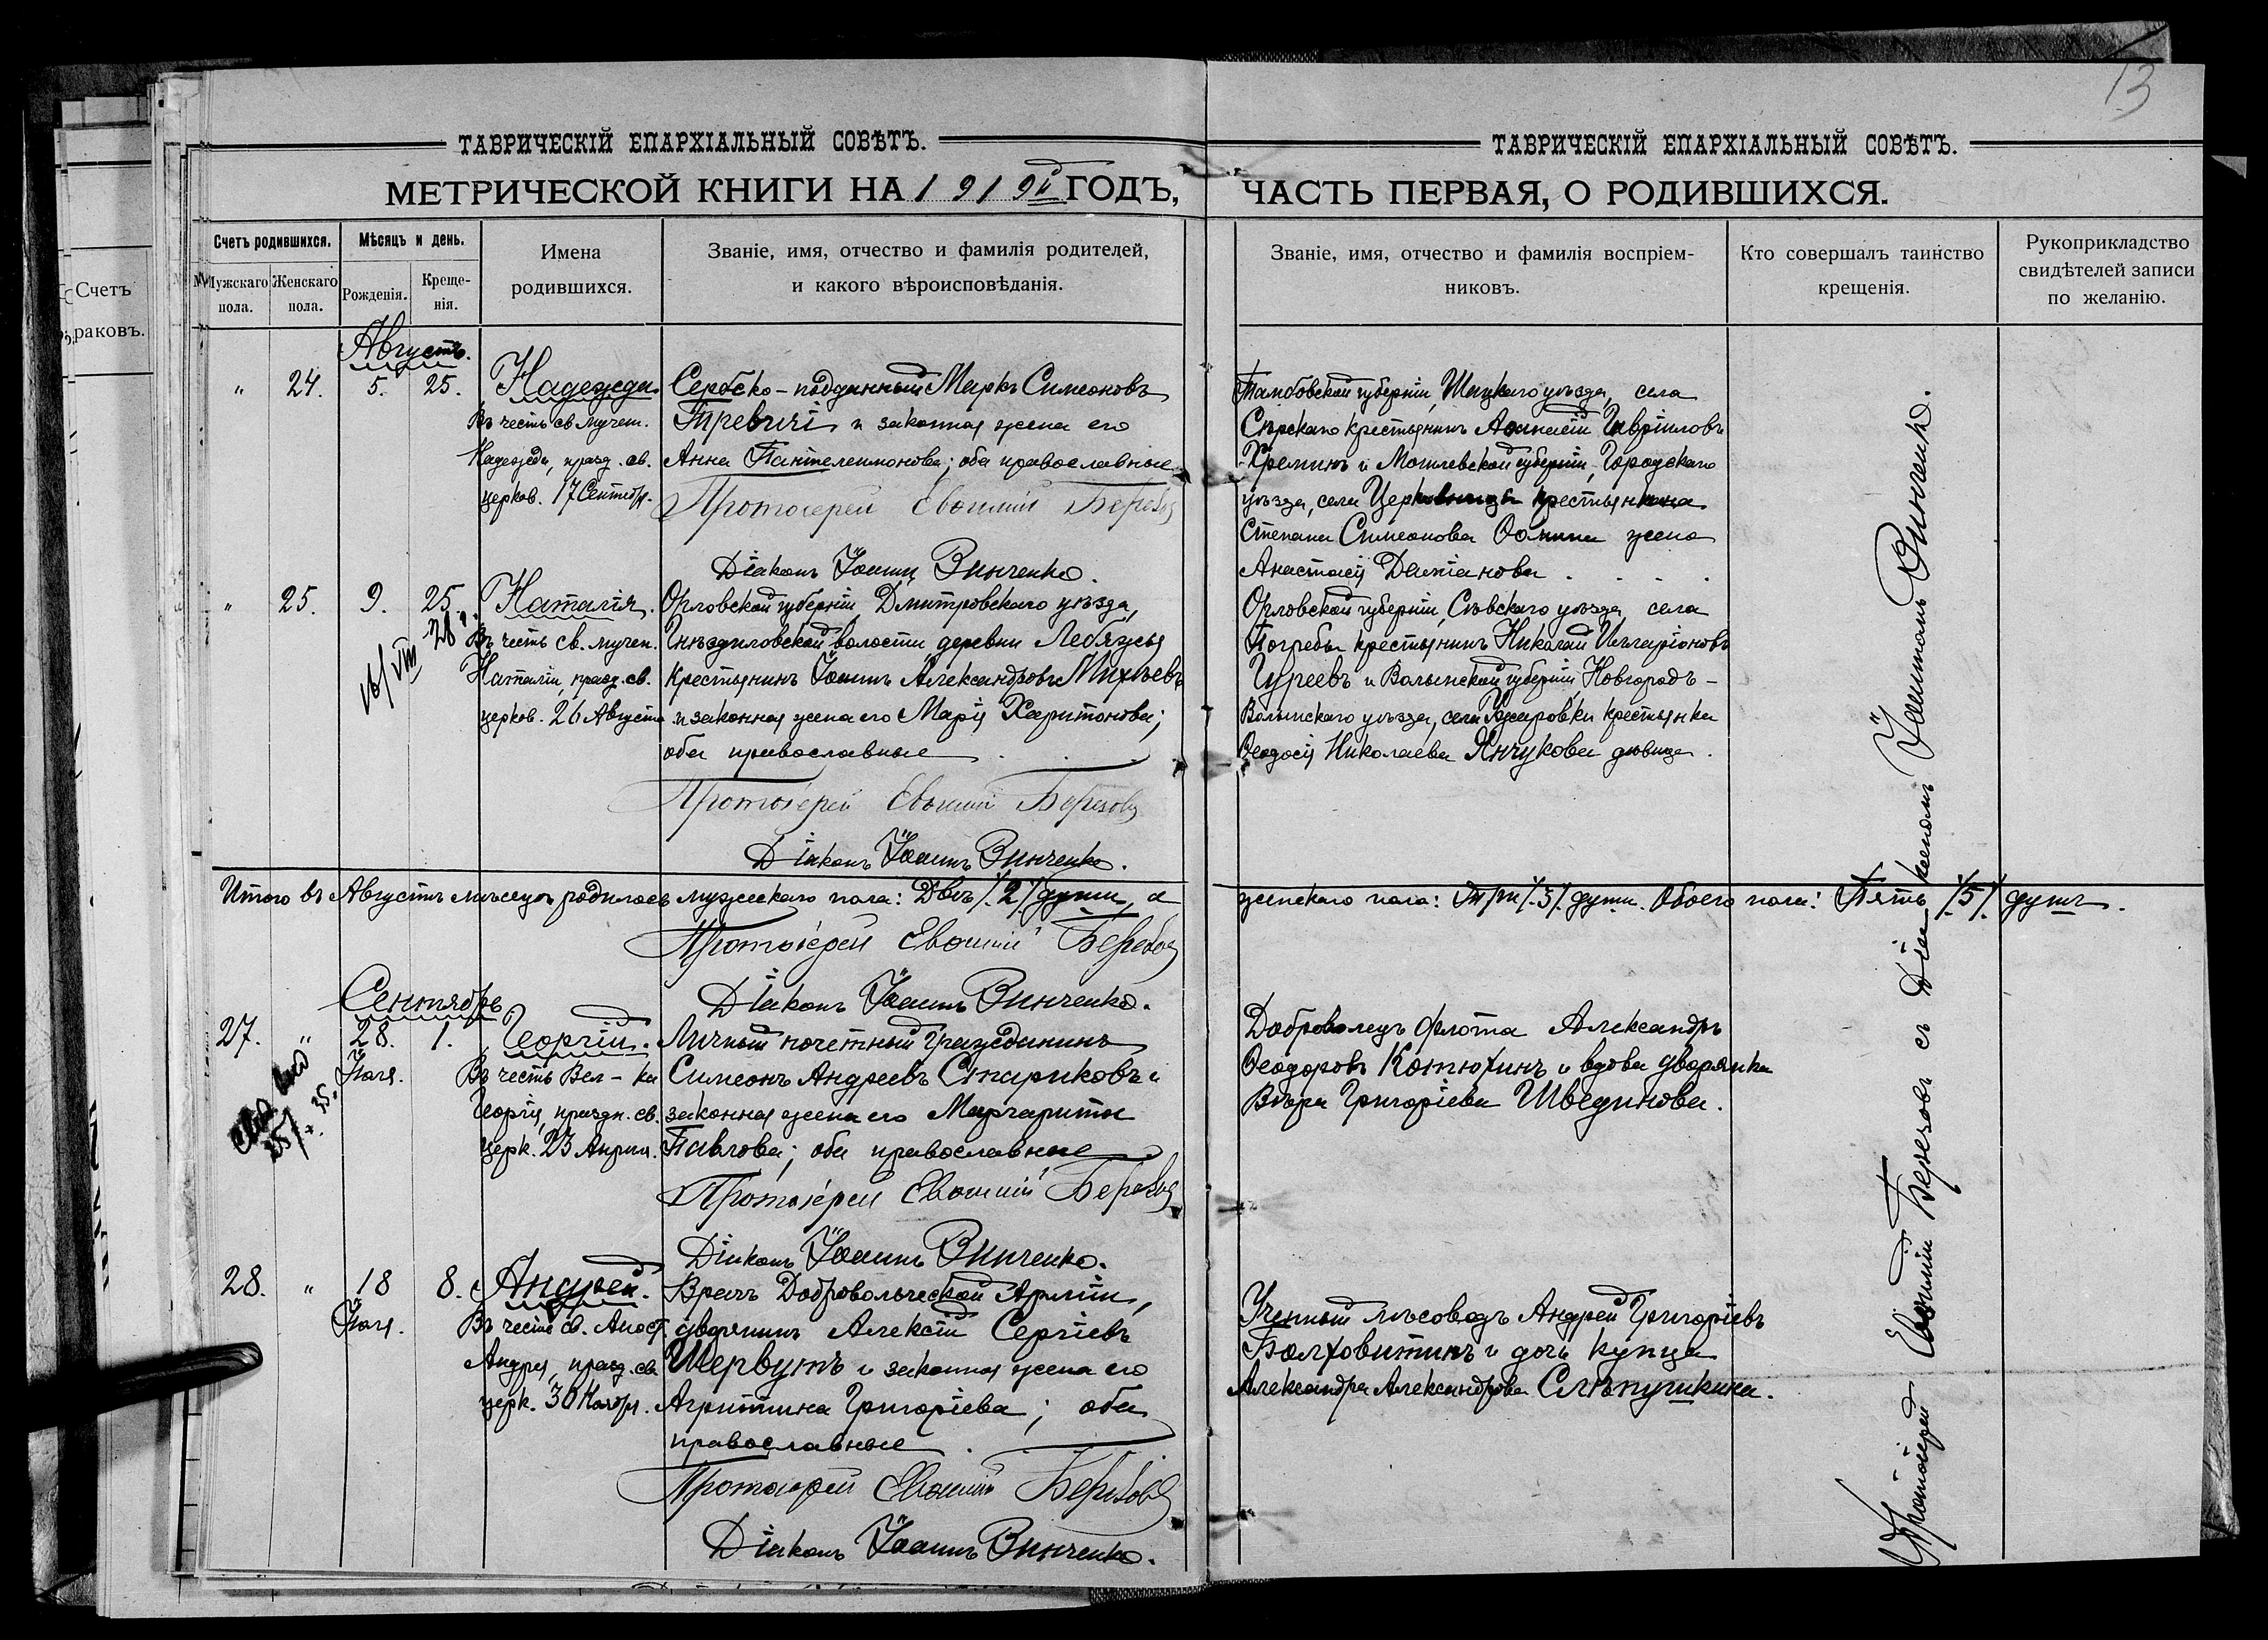 13
ТАВРИЧЕСКІЙ ЕПАРХІАЛЬНЫЙ СОВѢТЪ.
МЕТРИЧЕСКОЙ КНИГИ НА 1919й ГОДЪ,
Счетъ родившихся.
Мужскаго пола.
Женскаго пола.
Мѣсяцъ и день.
Рожденія.
Креще-
нія.
Имена
родившихся.
Званіе, имя, отчество и фамилія родителей,
и какого вѣроисповѣданія.
Счетъ
раковъ.
Августъ.
" 24. 5. 25. Надежда.
Въ честь св. мучен.
Надежды, празд. св.
церков. 17 Сентябр.
Сербско-подданный Маркъ Симеоновъ
Требичі и законная жена его
Анна Пантелеимонова; оба православные
Протоіерей Евѳимій Березовъ
Діаконъ Іоаннъ Винченко.
" 25. 9. 25. Наталія.
16/VIII
Въ честь св. мучен.
Наталіи, празд. св.
церков. 26 Августа
Орловской губерніи, Дмитровскаго уѣзда,
Гнѣздиловской волости, деревни Лебяжья
крестьянинъ Іоаннъ Александровъ Михѣевъ
и законная жена его Марія Харитонова;
оба православные
Протоіерей Евѳимій Березовъ
Діаконъ Іоаннъ Винченко.
Итого въ Августѣ мѣсяцѣ родилось мужескаго пола: Двѣ /.2/. души, а
Протоіерей Евѳимій Березовъ
Діаконъ Іоаннъ Винченко.
Сентябрь
27. " 28. 1. Георгій.
Іюля.
Въ честь Вел-ка
Георгія, праздн. св.
церк. 23 Апрѣл.
Личный почетный гражданинъ
Симеонъ Андреевъ Стариковъ и
законная жена его Маргарита
Павлова; оба православные
Протоіерей Евѳимій Березовъ
Діаконъ Іоаннъ Винченко.
28. " 18 8. Андрей.
Іюля.
Въ честь св. Апост.
Андрея, празд. св.
церк. 30 Ноябр.
Врачъ Добровольческой Арміи,
дворянинъ Алексій Сергіевъ
Шервутъ и законная жена его
Агриппина Григоріева; оба
православные
Протоіерей Евѳимій Березовъ
Діаконъ Іоаннъ Винченко.
ТАВРИЧЕСКІЙ ЕПАРХІАЛЬНЫЙ СОВѢТЪ.
ЧАСТЬ ПЕРВАЯ, О РОДИВШИХСЯ.
Званіе, имя, отчество и фамилія воспріем-
никовъ.
Кто совершалъ таинство
крещенія.
Рукоприкладство
свидѣтелей записи
по желанію.
Тамбовской губерніи, Шацкаго уѣзда, села
крестьянинъ Гавріиловъ
и Могилевской губерніи, Городскаго
уѣзда, села крестьянина
Степана Симеонова жена
Анастасія Даміанова
Орловской губерніи, Сѣвскаго уѣзда, села
Погребы крестьянинъ Николай Илларіоновъ
Гуреевъ и Волынской губерніи, Новгородъ-
Волынскаго уѣзда, села крестьянка
Ѳеодосія Николаева Янчукова дѣвица.
женскаго пола: Три /.3/. души. Обоего пола: Пять /.5/. душъ.
Доброволецъ флота Александръ
Ѳеодоровъ Котюхинъ и вдова дворянка
Вѣра Григоріева Швединова.
Ученый лѣсоводъ Андрей Григоріевъ
Болховитинъ и дочь купца
Александра Александрова Слѣпушкина.
Протоіерей Евѳимій Березовъ съ Діакономъ Іоанномъ Винченко.